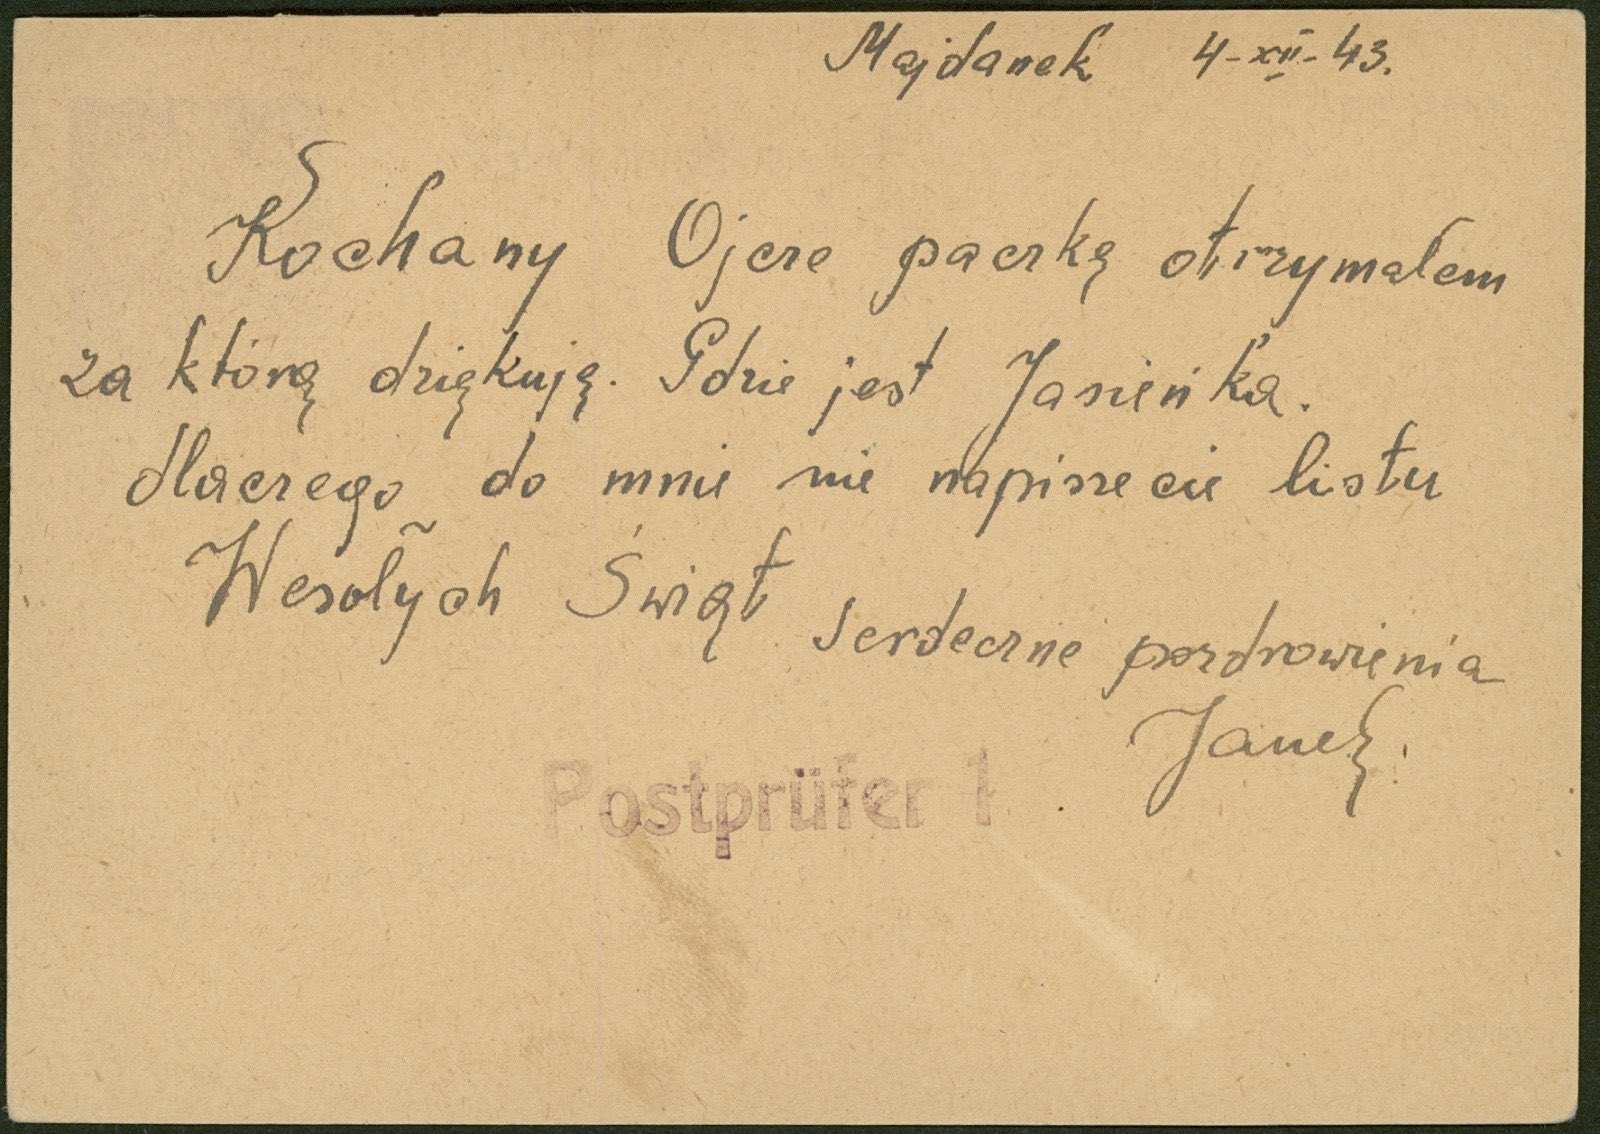 Majdanek 4-XII-43.
Kochany Ojcze paczkę otrzymałem
za którą dziękuję. Gdzie jest Jasieńka.
dlaczego do mnie nie napiszecie listu
Wesołych Świąt serdeczne pozdrowienia
Janek.
Postprüfer 1